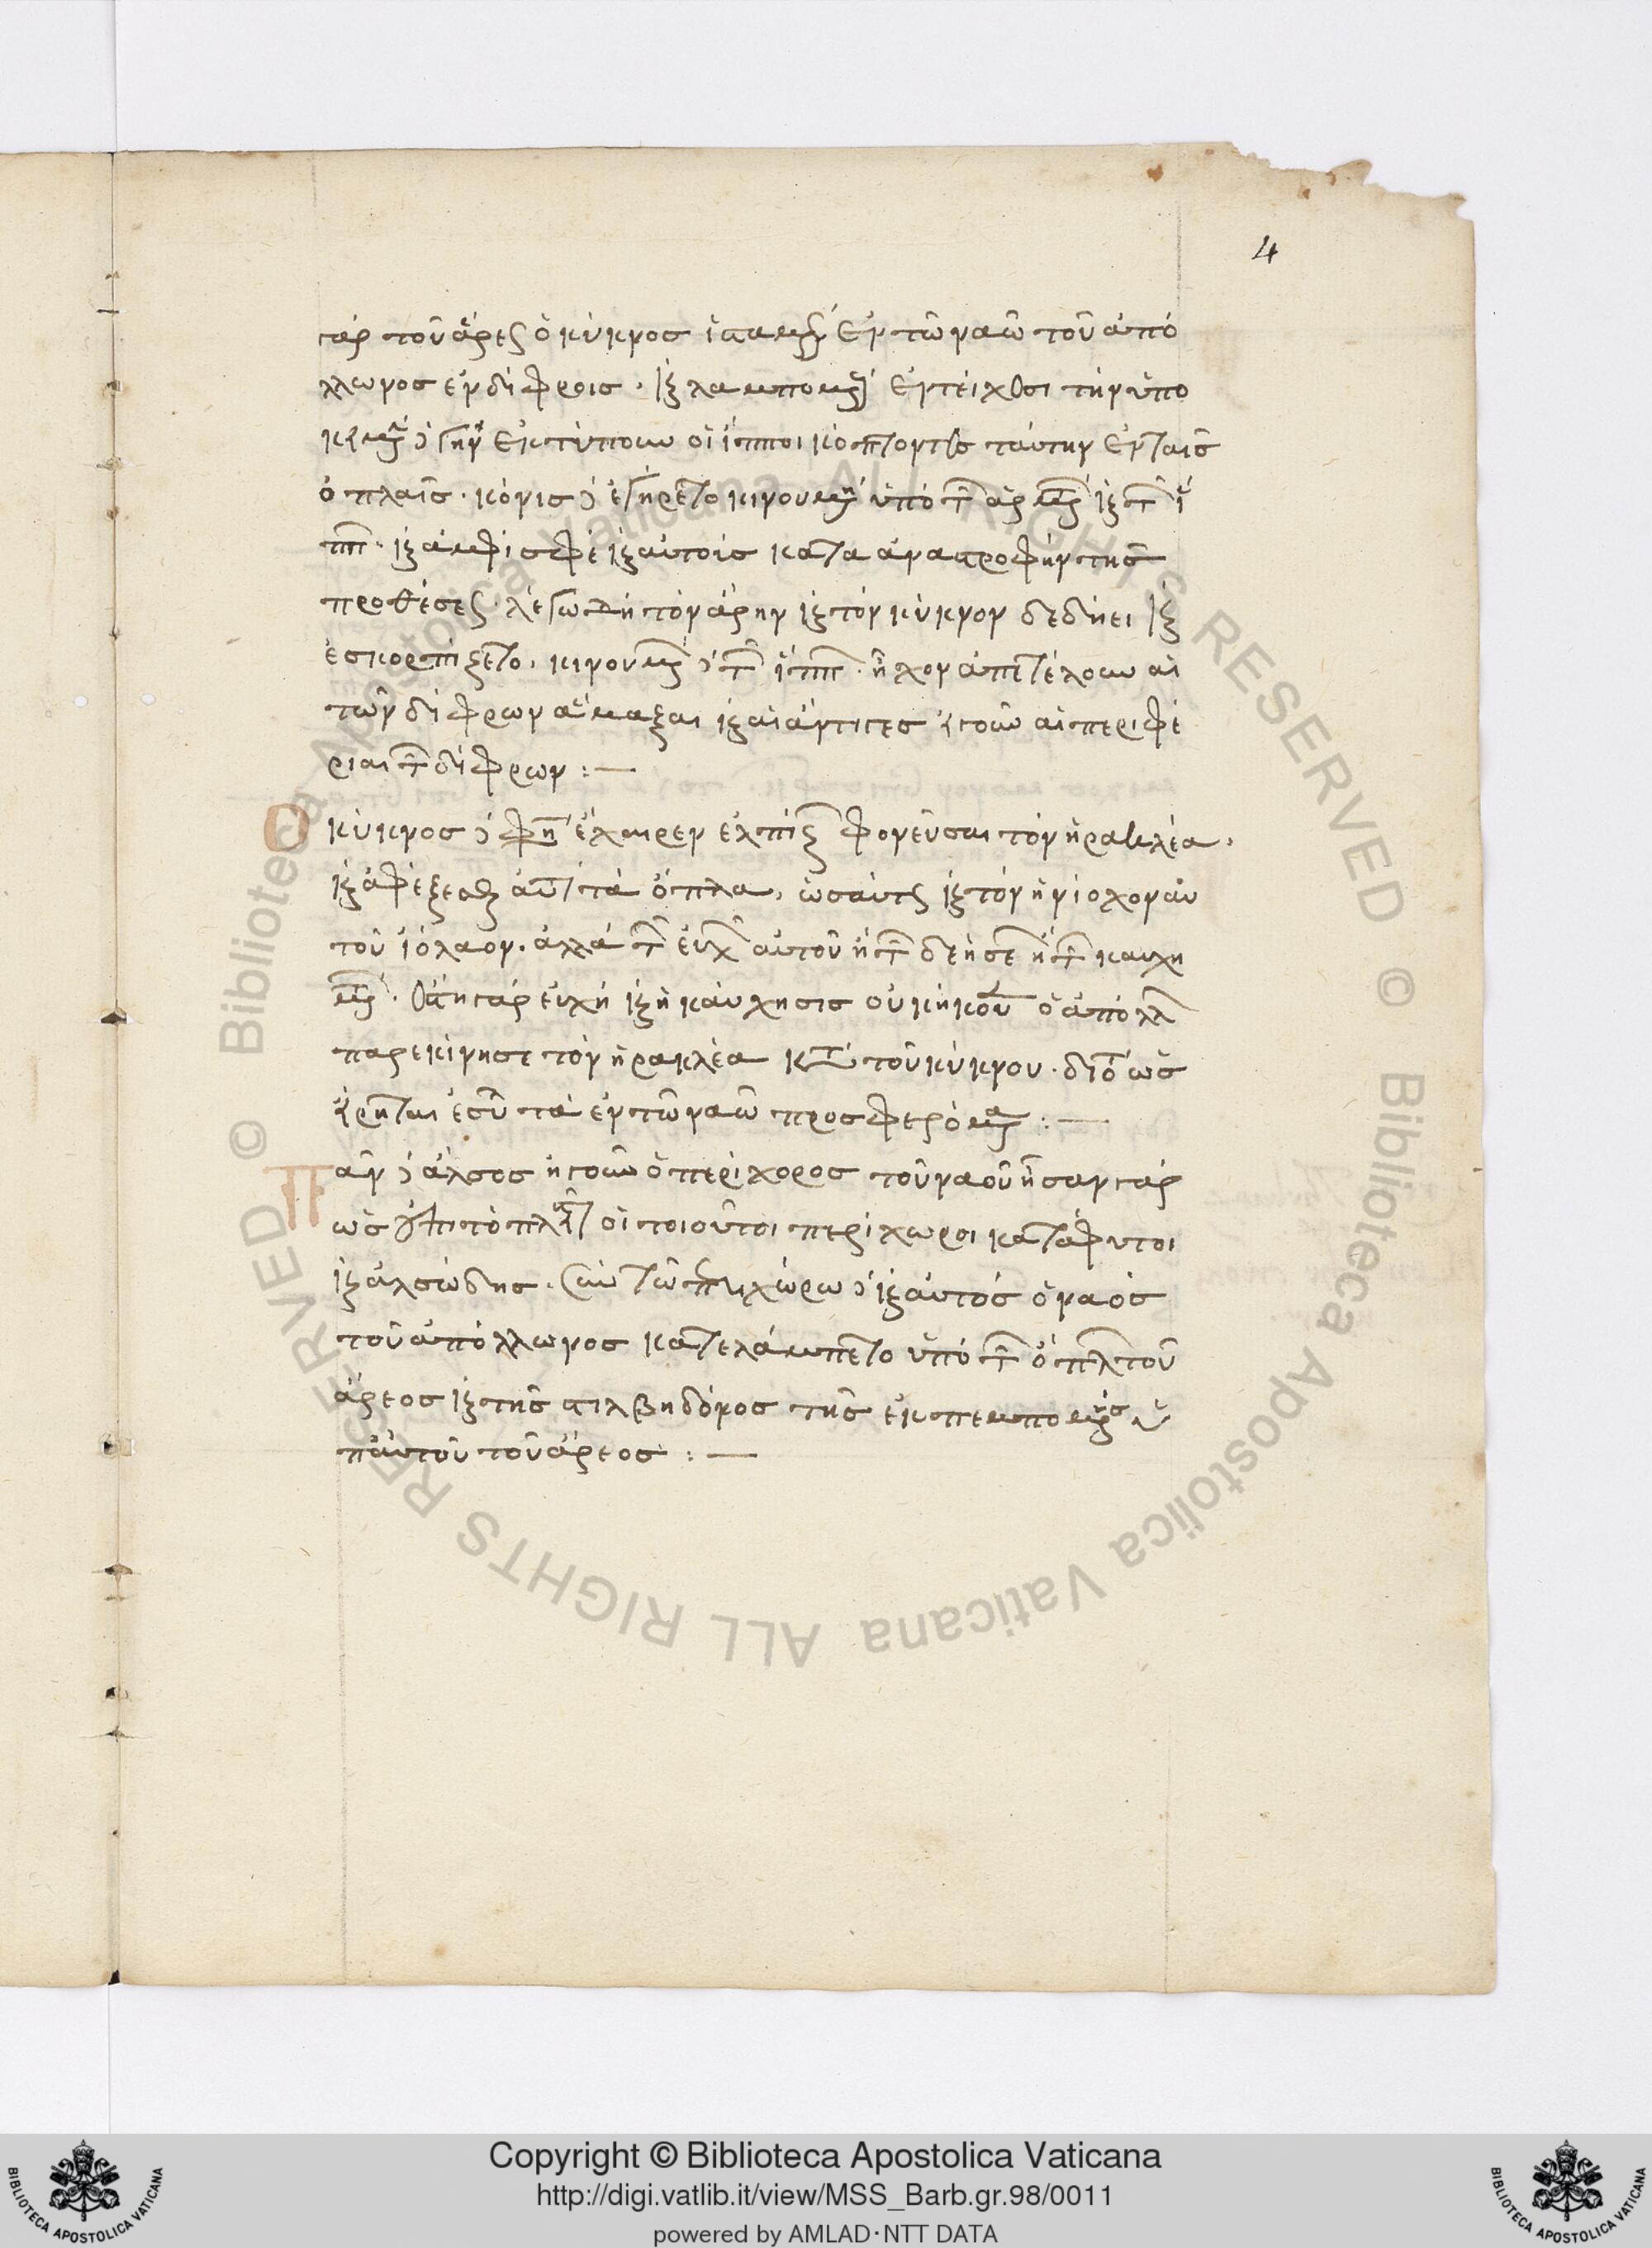 4
τὰρ τοῦ ἄρεος ὁ κύκνος ἱστάμενοι ἐν τῷ ναῷ τοῦ ἀπό
λλωνος ἐν δίφροις. καὶ λαμπόμενοι ἐν τείχεσι τὴν ὑπο
κειμένην γῆν ἐκτύπουν οἱ ἵπποι κόπτοντες ταύτην ἐν ταῖς
ὁπλαῖς. κόνις δὲ ἐγείρετο κινουμένη ὑπὸ τῶν ἁρμάτων καὶ τῶν ἵ
ππων. καὶ ἀμφίσφε καὶ αὐτοῖς κατὰ
προθέσεως. λέγω δὴ τὸν ἄρην καὶ τὸν κύκνον δεδήει καὶ
ἐσκορπίζετο. κινουμένων δὲ τῶν ἵππων. ἦχον ἀπετέλουν αἱ
τῶν δίφρων ἅμαξαι καὶ αἱ ἄντυγες ἤγουν αἱ περιφέ
ριαι τῶν δίφρων :—
Ὁ κύκνος δὲ φησὶν ἔχαιρεν ἐλπίζων φονεῦσαι τὸν ἡρακλέα.
καὶ ἀφέξεσθαι αὐτοῦ τὰ ὅπλα, ὡσαύτως καὶ τὸν ἡνίοχον αὐ
τοῦ ἰόλαον. ἀλλὰ τῶν εὐχῶν αὐτοῦ ἢ τῶν δεήσεων ἢ τῶν καυχη
μάτων. εὐχὴ καὶ ἡ καύχησις οὐκ ἤκουεν ὁ ἀπόλλων
παρεκίνησε τὸν ἡρακλέα κατὰ τοῦ κύκνου. διότι ὡς
εἴρηται ἐσύλα τὰ ἐν τῷ ναῷ προσφερόμενα :—
Πᾶν δὲ ἄλσος ἤγουν ὁ περίχορος τοῦ ναοῦ ἦσαν γὰρ
ὡς ἐπὶ τὸ πλεῖστον οἱ τοιοῦτοι περίχωροι κατάφυτοι
καὶ ἀλσώδης. σὺν τῷ περιχώρω δὲ καὶ αὐτὸς ὁ ναὸς
τοῦ ἀπόλλωνος κατελάμπετο ὑπὸ τῶν ὅπλων τοῦ
ἄρεος καὶ τῆς στιλβηδόνος τῆς ἐκπεμπομένης ὑ
π' αὐτοῦ τοῦ ἄρεος :—
Copyright © Biblioteca Apostolica Vaticana
http://digi.vatlib.it/view/MSS_Barb.gr.98/0011
powered by AMLAD·NTT DATA
BIBLIOTECA APOSTOLICA VATICANA
BIBLIOTECA APOSTOLICA VATICANA
© Biblioteca Apostolica Vaticana ALL RIGHTS RESERVED
© Biblioteca Apostolica Vaticana ALL RIGHTS RESERVED